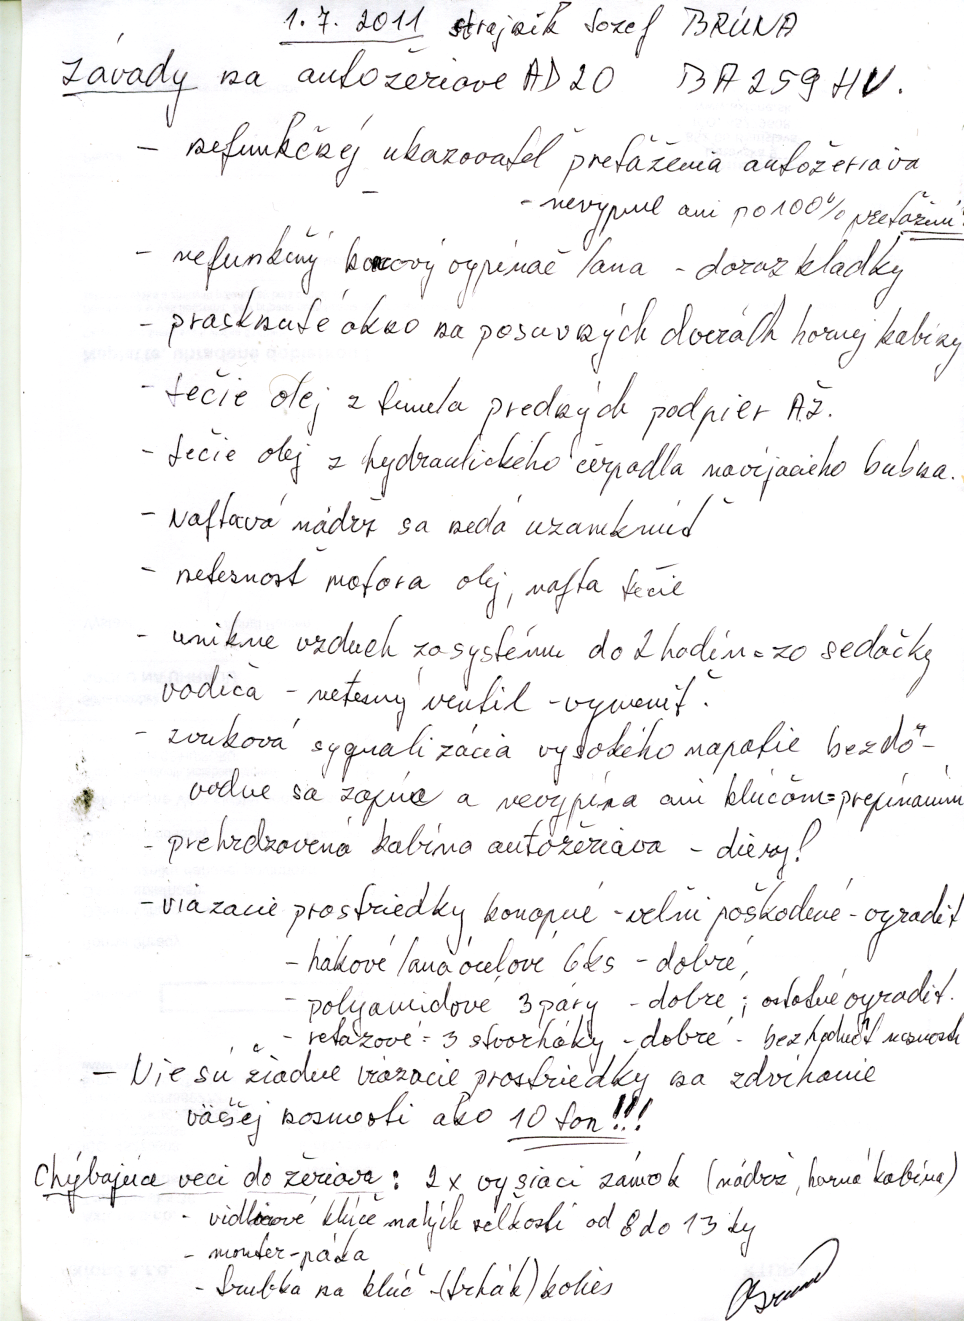 1.7. 2011 strojník Jozef BRÚNA
Závady na autožeriave AD20 BA259HV.
- nefunkčný ukazovateľ preťaženia autožeriava
- nevypne ani po 100% preťažení
- nefunkčný koncový vypínač lana - doraz kladky
- prasknuté okno na posuvných dverách hornej kabíny
- tečie olej z tunela predných podpier AŽ.
- tečie olej z hydraulického čerpadla navíjacieho bubna.
- Naftová nádrž sa nedá uzamknúť
- netesnosť motora olej, nafta tečie
- unikne vzduch zo systému do 2 hodín = zo sedačky
vodiča - netesný ventil - vymeniť.
- zvuková sygnalizácia vysokého napätie bezdô-
vodne sa zapína a nevypína ani kľúčom = prepínaním
- prehrdzavená kabína autožeriava - diery!
- viazacie prostriedky konopné - veľmi poškodené - vyradiť
- hákové laná ocelové 6ks - dobré,
- polyamidové 3 páry - dobré; ostatné vyradiť.
- reťazové = 3 štvorháky - dobré - bez hodnôt nosnosti
- Nie sú žiadne viazacie prostriedky na zdvíhanie
väčšej nosnosti ako 10 ton!!!
Chýbajúce veci do žeriava: 2x vysiaci zámok (nádrž, horná kabína)
- vidlicové kľúče malých veľkostí od 8 do 13 ky
- monter-páka
- trubka na kľúč - (trhák) kolies
Brúna